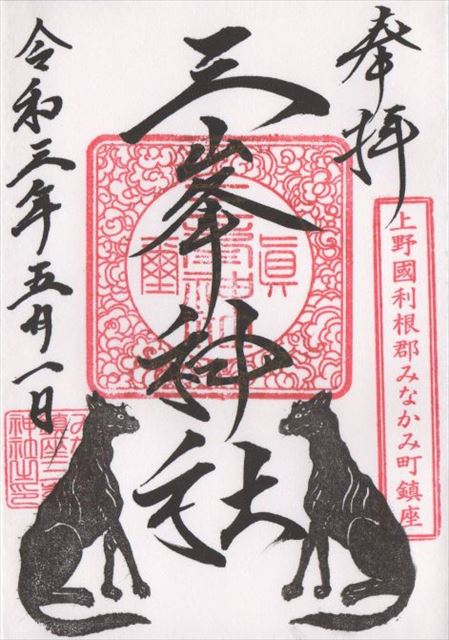 奉拝
上野國利根郡みなかみ町鎮座
三峯神社
令和三年五月一日